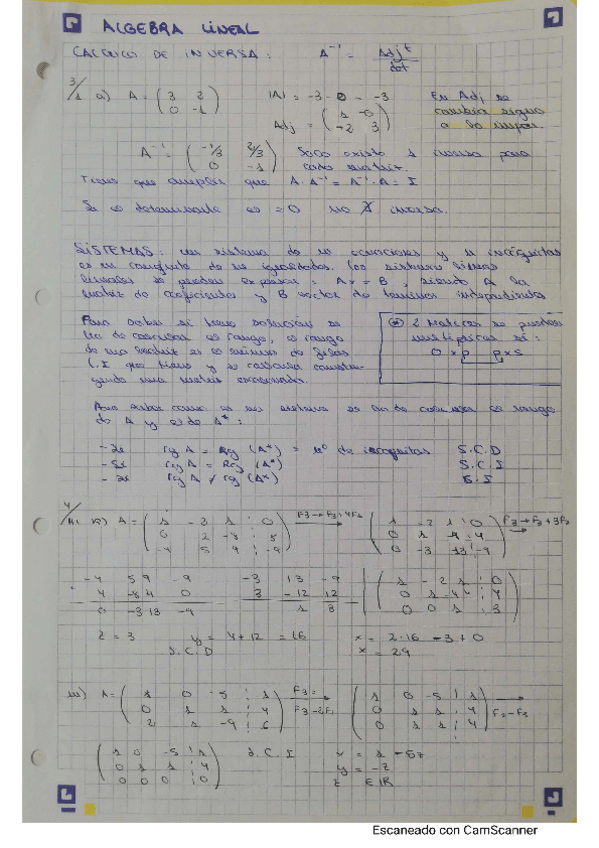 ALGEBRA LINEAL
CALCULO DE INVERSA : A⁻¹ = Adjᵗ / det
3/1 a) A = ( 3 2 ; 0 -1 ) |A| = -3 - 0 = -3 En Adj se
cambia signo
Adj = ( 1 -0 ; -2 3 ) a lo impar.
A⁻¹ = ( -1/3 2/3 ; 0 -1 ) Solo existe 1 inversa para
cada matriz.
Tiene que cumplir que A·A⁻¹ = A⁻¹·A = I
Si el determinante es = 0 no ∄ inversa.
SISTEMAS : un sistema de m ecuaciones y n incógnitas
es un conjunto de m igualdades. Los sistemas
lineales se pueden expresar : Ax = B , siendo A la
matriz de coeficientes y B vector de terminos independientes
Para saber si tiene solución se
ha de calcular el rango, el rango
de una matriz es el número de filas
L.I que tiene y se calcula
una matriz escalonada.
2 Matrices se pueden
multiplicar si :
O x p p x s
Para saber como es un sistema se ha de calcular el rango
de A y el de A* :
- Si rg A = Rg (A*) = nº de incognitas S.C.D
- Si rg A = Rg (A*) S.C.I
- Si rg A ≠ rg (A*) S.I
4/ A = ( 1 -2 1 ¦ 0 ; 0 2 -8 ¦ 8 ; -4 5 9 ¦ -9 ) F3→F3+4F1 ( 1 -2 1 ¦ 0 ; 0 1 -4 ¦ 4 ; 0 -3 13 ¦ -9 ) F3→F3+3F2
-4 5 9 -9 -3 13 -9 ( 1 -2 1 ¦ 0
4 -8 4 0 3 -12 12 0 1 -4 ¦ 4
0 -3 13 -9 1 3 0 0 1 ¦ 3 )
z = 3 y = 4+12 = 16 x = 2·16 -3+0
S.C.D x = 29
A = ( 1 0 -5 ¦ 1 ; 0 1 1 ¦ 4 ; 2 1 -9 ¦ 6 ) F3 = F3-2F1 ( 1 0 -5 ¦ 1 ; 0 1 1 ¦ 4 ; 0 1 1 ¦ 4 )
( 1 0 -5 ¦ 1 S.C.I
0 1 1 ¦ 4 y = -z
0 0 0 ¦ 0 ) z ∈ IR
Escaneado con CamScanner